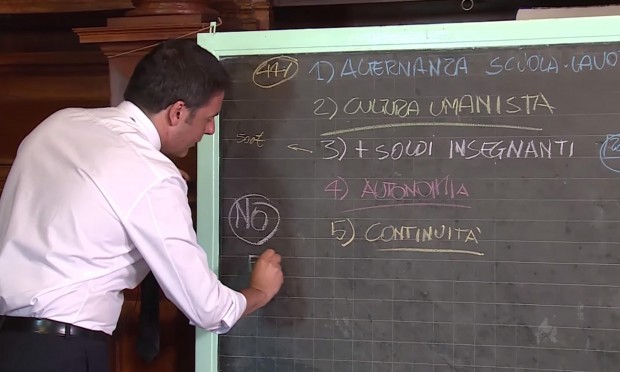 1) ALTERNANZA SCUOLA-LAVO
2) CULTURA UMANISTA
3) + SOLDI INSEGNANTI
4) AUTONOMIA
NO
5) CONTINUITÀ